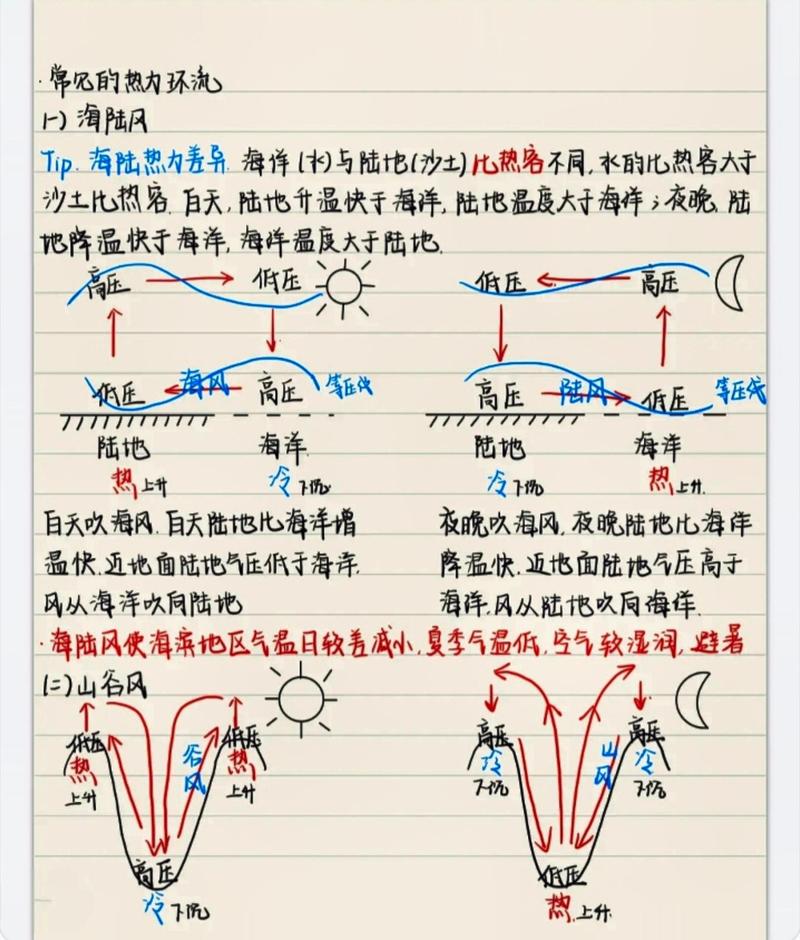 ·常见的热力环流
(一)海陆风
Tip. 海陆热力差异. 海洋(水)与陆地(沙土)比热容不同,水的比热容大于
沙土比热容.白天,陆地升温快于海洋,陆地温度大于海洋;夜晚,陆
地降温快于海洋,海洋温度大于陆地.
高压 低压
低压 高压
低压 海风 高压 等压线
高压 陆风 低压 等压线
陆地 海洋
陆地 海洋
热上升 冷下沉
冷下沉 热上升.
白天吹海风.白天陆地比海洋增
温快.近地面陆地气压低于海洋.
风从海洋吹向陆地
夜晚吹海风.夜晚陆地比海洋
降温快.近地面陆地气压高于
海洋.风从陆地吹向海洋.
·海陆风使海滨地区气温日较差减小,夏季气温低,空气较湿润,避暑
(二)山谷风
低压 低压
热 谷风 热
上升 上升
高压
冷下沉
高压 高压
冷 山风 冷
下沉 下沉
低压
热上升.